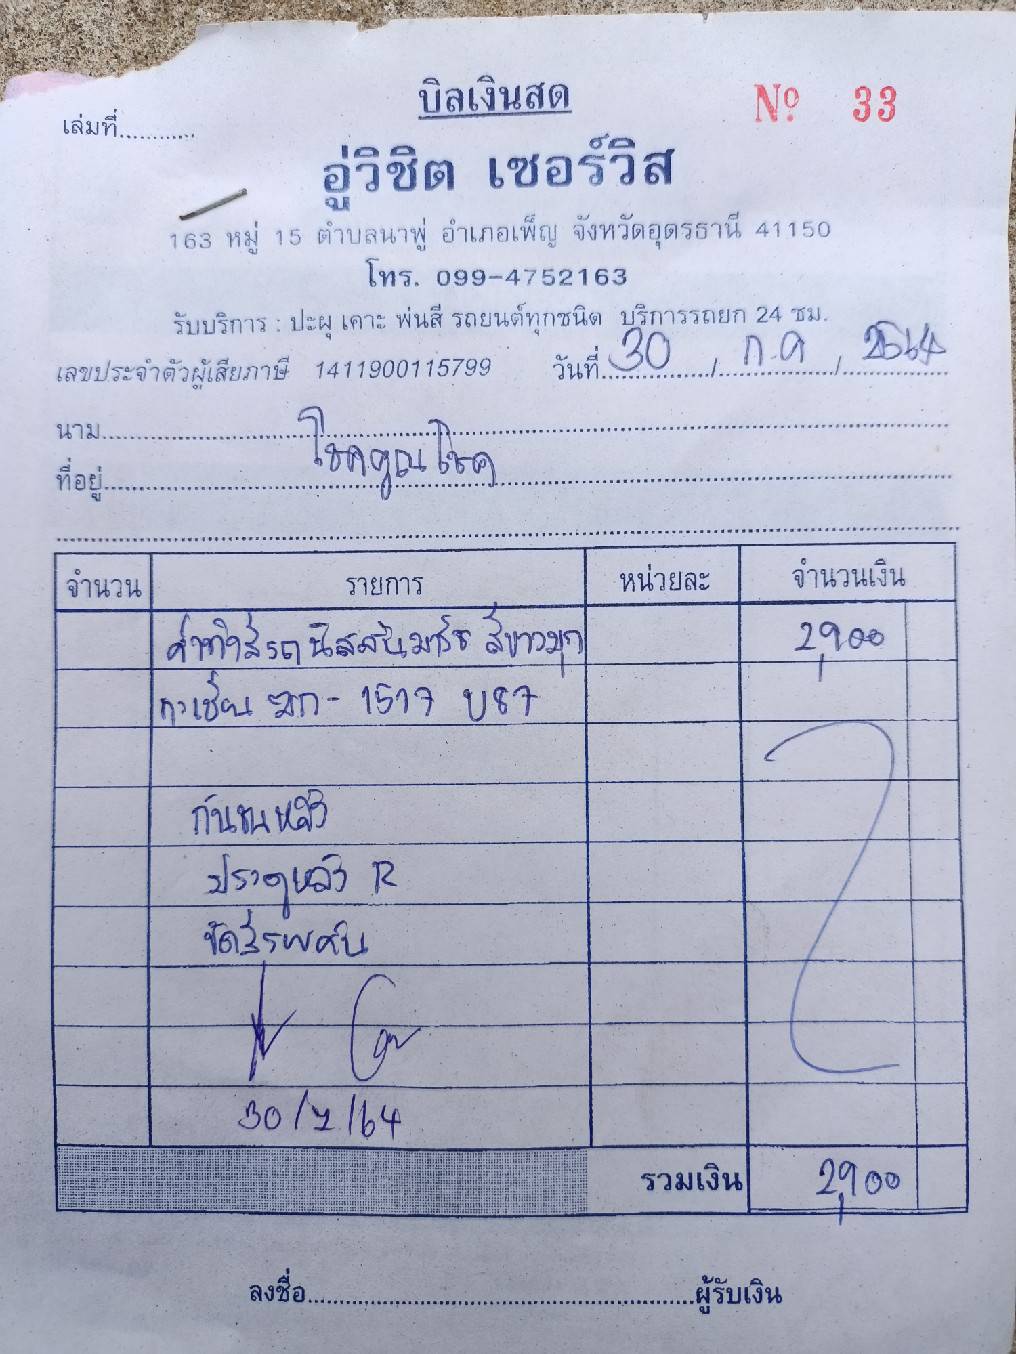 บิลเงินสด
เล่มที่............ Nº 33
อู่วิชิต เซอร์วิส
163 หมู่ 15 ตำบลนาพู่ อำเภอเพ็ญ จังหวัดอุดรธานี 41150
โทร. 099-4752163
รับบริการ : ปะผุ เคาะ พ่นสี รถยนต์ทุกชนิด บริการรถยก 24 ชม.
เลขประจำตัวผู้เสียภาษี 1411900115799 วันที่ 30 / ก.ค / 2564
นาม
ที่อยู่ โชคคูณโชค
จำนวน รายการ หน่วยละ จำนวนเงิน
ค่าทำสีรถ นิสสันมาร์ช สีขาวมุก 2,900
ทะเบียน ฆก - 1517
กันชนหลัง
ประตูหลัง R
ขัดสีรพคัน
30/7/64
รวมเงิน 2,900
ลงชื่อ ผู้รับเงิน